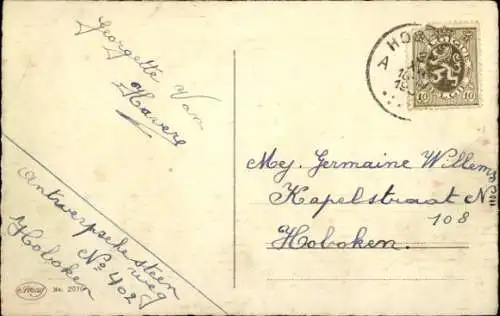 Georgette Van
Havere
Antwerpsche steen
weg
No 402
Hoboken
No. 2070
HO
A
10
10
Mej. Germaine Willems
Kapelstraat No
108
Hoboken.